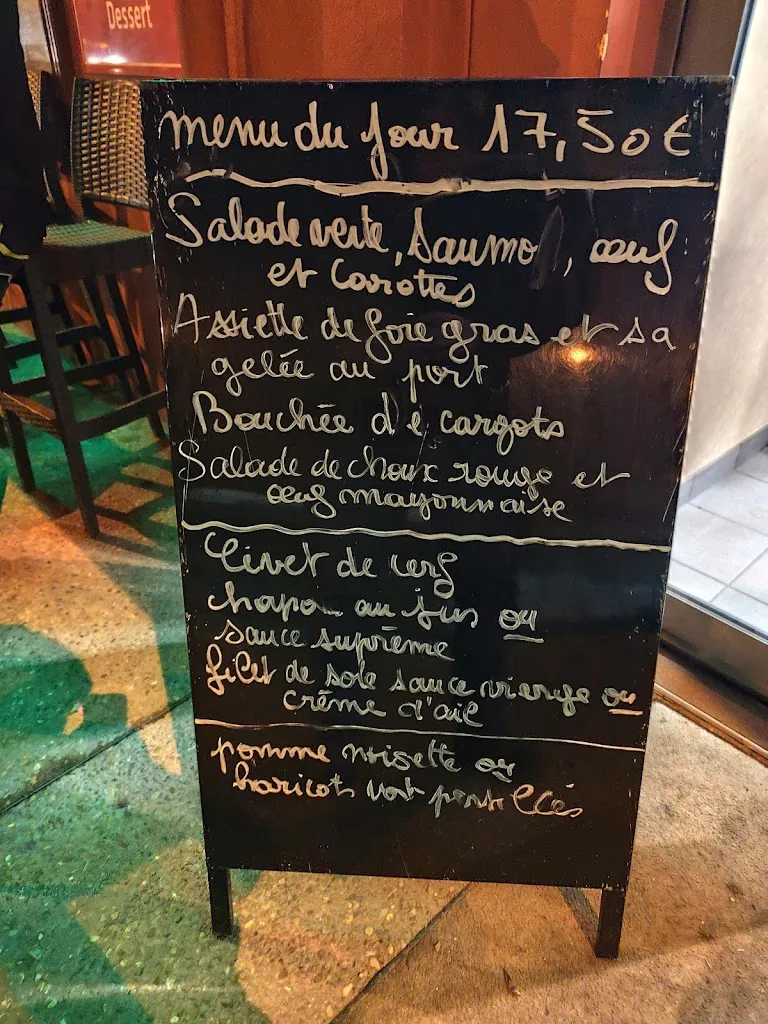 Dessert
menu du jour 17,50€
Salade verte, Saumon, œuf
et Carottes
Assiette de foie gras et sa
gelée au port
Bouchée d'escargots
Salade de choux rouge et
œuf mayonnaise
Civet de cerf
chapon au jus ou
sauce suprême
filet de sole sauce vierge ou
crème d'ail
pomme noisette ou
haricots vert persillés